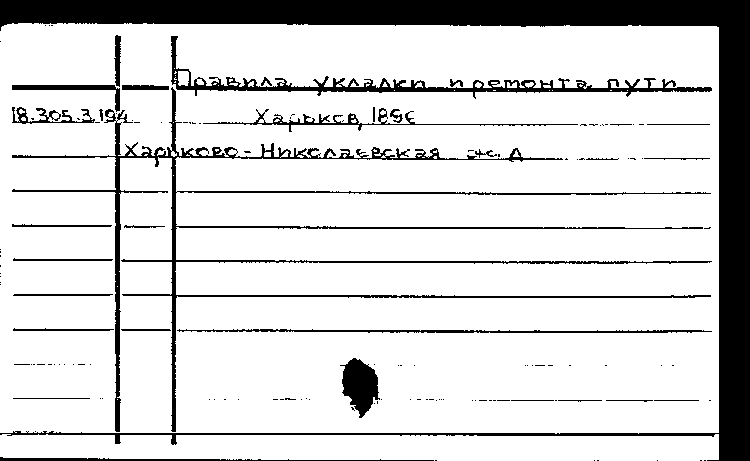 Правила укладки и ремонта пути
18.305.3.194 Харьков, 1896
Харьково-Николаевская ж. д.